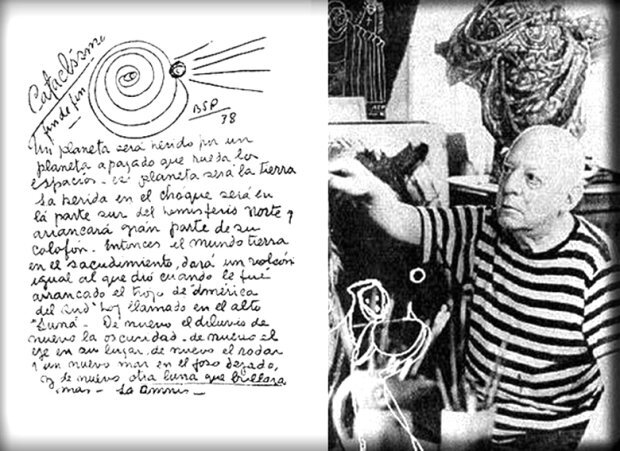 Cataclismo
fin de fin
BSP
38
Un planeta será herido por un
planeta apagado que rueda los
espacios - planeta será la tierra
La herida en el choque será en
la parte sur del hemisferio norte y
arrancará gran parte de su
colofón. Entonces el mundo tierra
en el sacudimiento, dará un volcón
igual al que dió cuándo le fué
arrancado el trozo de "america
del sud" hoy llamado en el alto
"Luna" - De nuevo el diluvio de
nuevo la oscuridad. de nuevo el
eje en su lugar, de nuevo el rodar
y un nuevo mar en el foso dejado,
y de nuevo otra luna que brillara
mas -